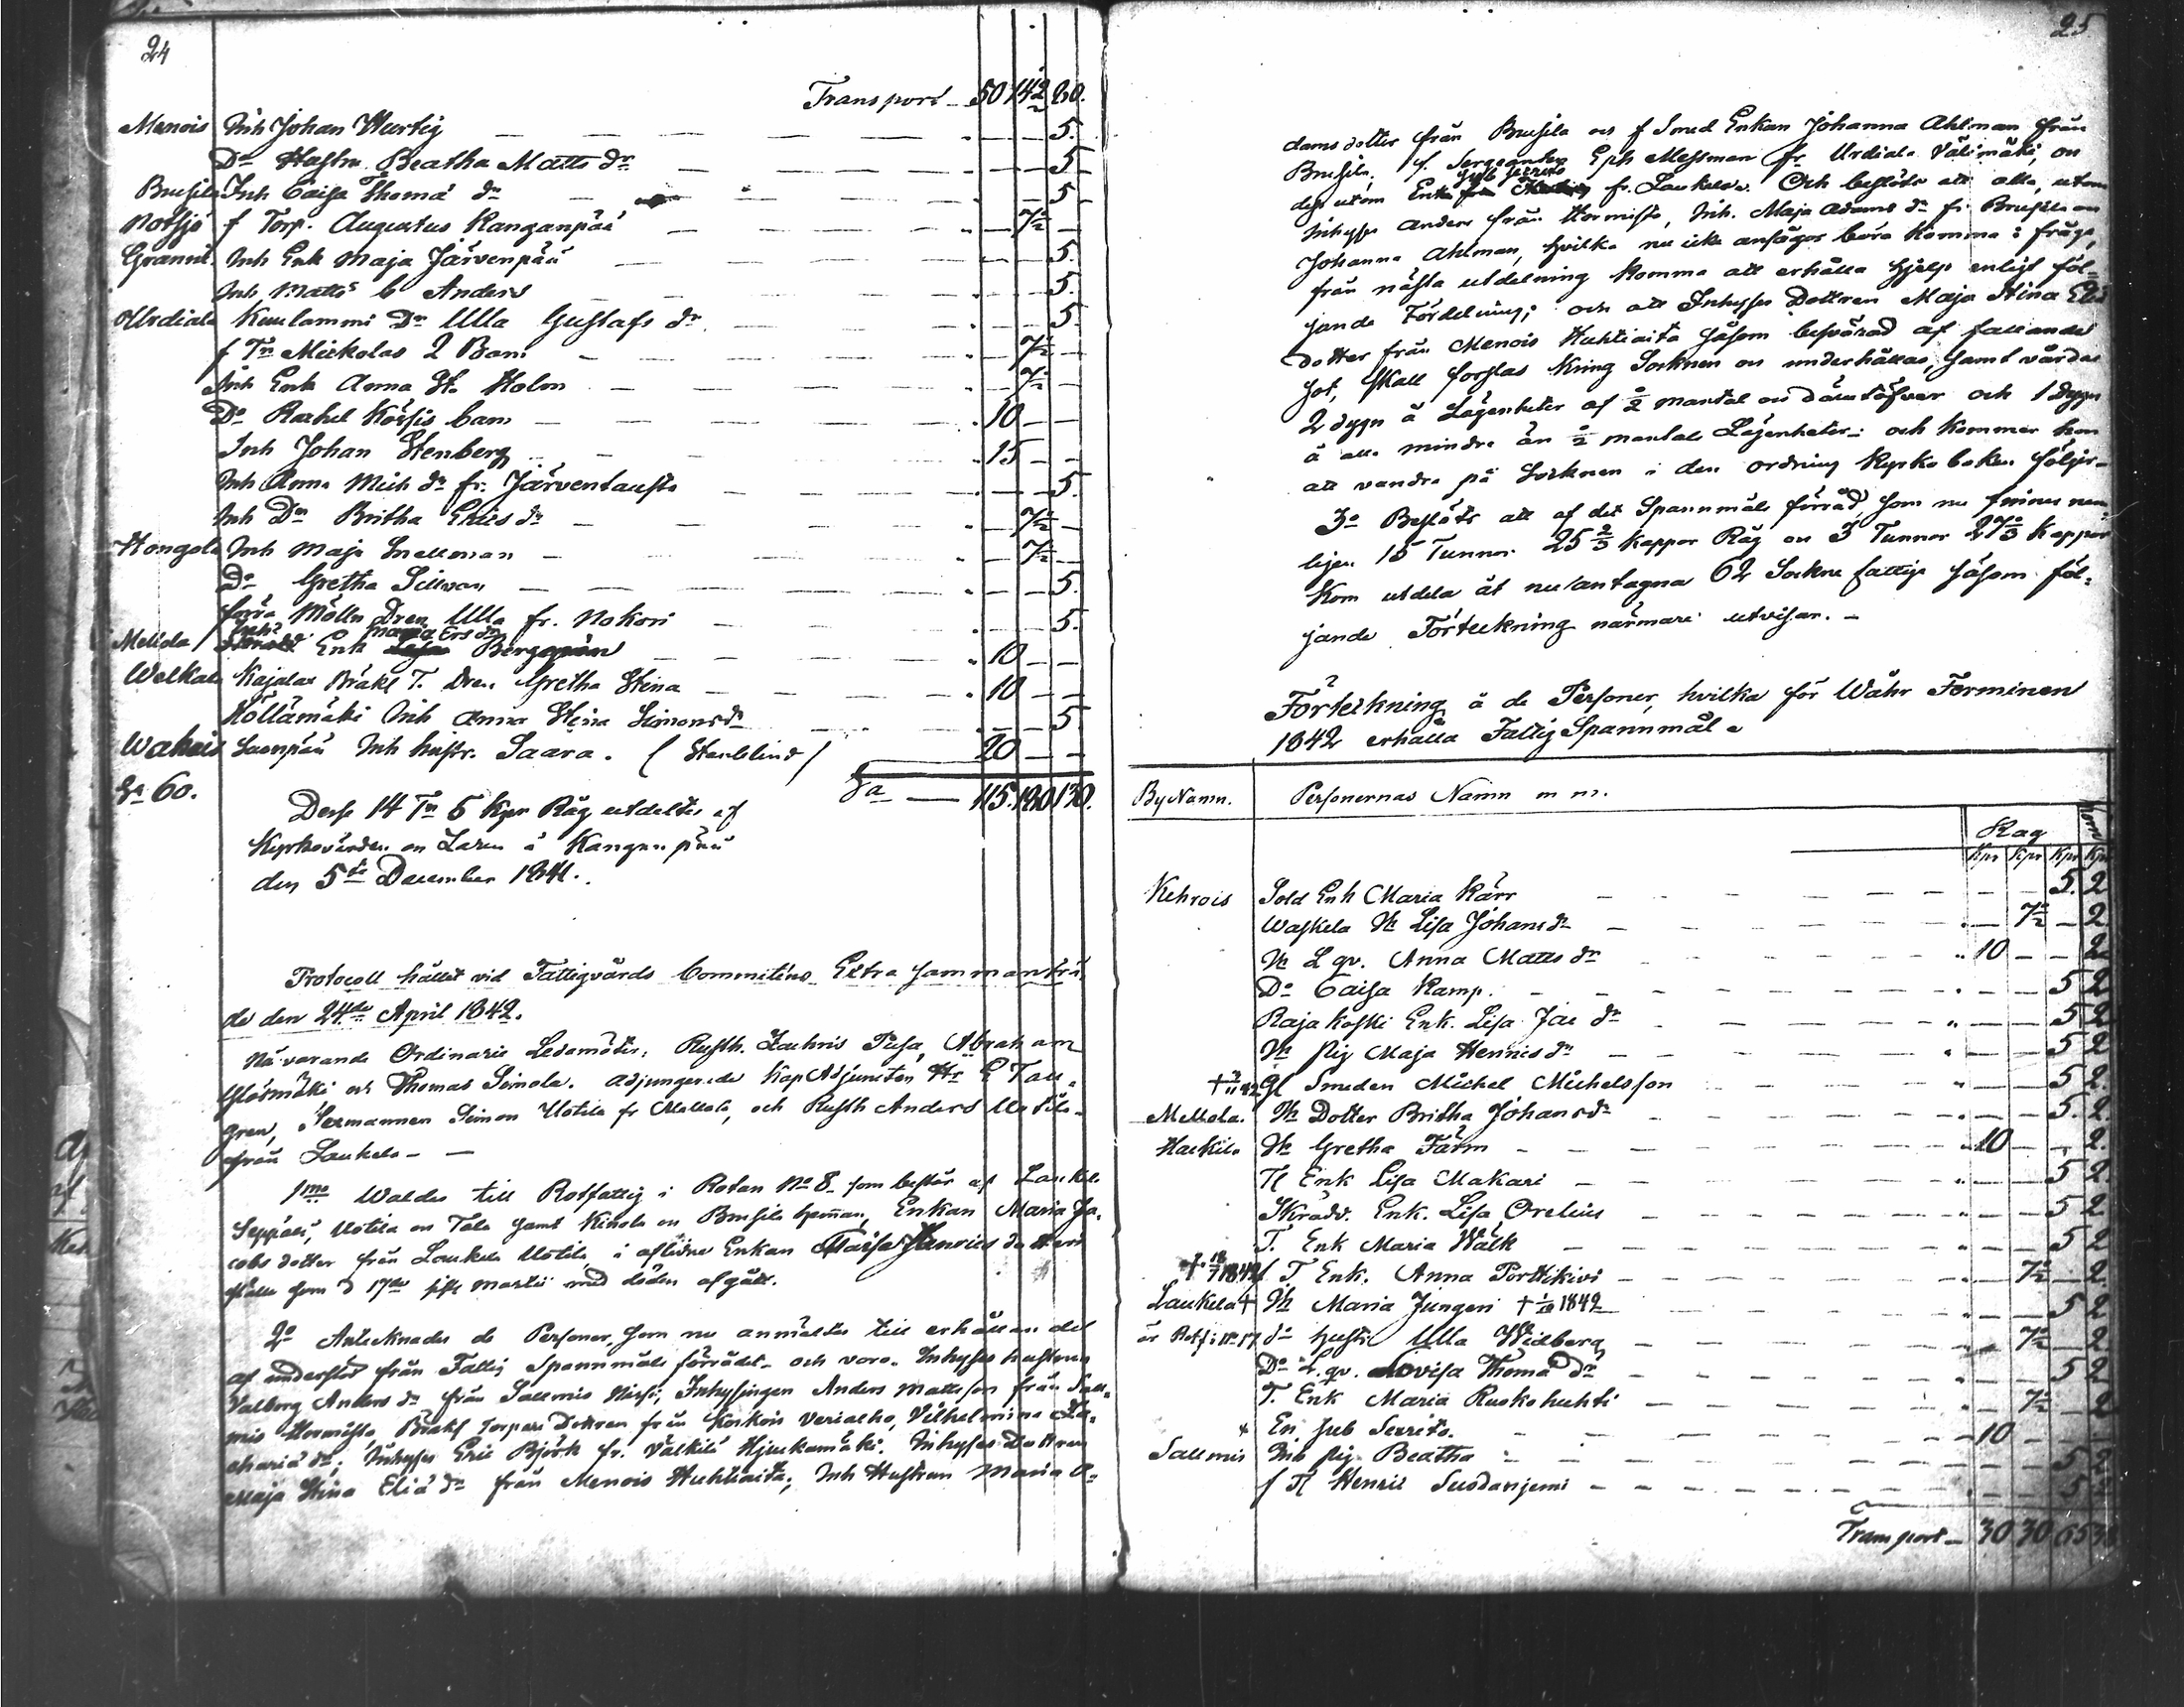 24
Transport 50 142 80.
Menois Inh Johan Hurtig — 5.
Do Hustru Beatha Matts dr — 5
Inh Caisa Thomæ dr — 5
Notsjö f Torp. Augustus Kanganpää — 7½ —
Inh Enk Maja Järvenpää — 5.
Inh Matts b Anders — 5.
Urdiala Kuulammi Dr Ulla Gustafs dr — 5
f Tr Mickolas 2 Barn — 7½ —
Inh Enk Anna St. Holm — 7½
Do Rachel barn — 10 — —
Inh Johan Stenberg — 15 — —
Inh Anna Mich dr fr. Järventausta — 5.
Inh Dr Britha Erics dr — 7½ —
Hongola Inh Maja Snellman — 7½ —
Do Gretha Sillman — 5.
förra Möln Dren Ulla fr. Nokori — 5.
Mellola Enk Maria Ers dr — 10 — —
Kajalax T. Dren Gretha Stina — 10 — —
Höllämäki Inh Anna Stina Simonsdr — 5
Inh hustr. Saara. (Stenblind) 20 — —
Sa 60. Sa — 115. 180 130.
Desse 14 Tr 5 Kpr Råg utdeltes af
Kyrkovärden Kanganpää
den 5te December 1841.
Protocoll hållit vid Fattigvårds Committéns Extra sammanträ-
de den 24de April 1842.
Närvarande Ordinarie Ledamöter: Rusth. Zachris Pusa, Abraham
och Thomas Simola. adjungerade Kap Adjuncten Hr G Tau-
gren, Simon Uotila fr Mellola, och Rusth Anders Uotila
från Laukela —
1mo Waldes till Rotfattig i Rotan No 8. som består af Laukela
Seppälä, Uotila och Tala samt och Enkan Maria Ja-
cobs dotter från Laukela Uotila, i aflidne Enkan
ställe som d 17de sistl. martii med döden afgått.
2o Antecknades de Personer, som nu anmältes till erhållande
af understöd från Fattig Spannmåls förrådet och voro. Inhyses hustrun
Valborg Anders dr från Sallmis Inhysingen Anders Mattsson från Sall-
mis torpare Dottren från Koskois Vilhelmina Za-
chariæ dr; Inhyses Eric Björk fr. Inhyses Dottren
Maja Stina Eliæ dr från Menois Huhtiaita; Inh Hustrun Maria A-
25
dams dotter från och f Smed Enkan Johanna Ahlman från
f. Sergeanten Messman fr. Urdiala Välimäki, och
dess utom Enk Jub Serrito fr. Laukela. Och beslöts att alla, utom
Inhyses Anders från Hormisto, Inh. Maja Adams dr fr. och
Johanna Ahlman, hvilka nu icke ansågos böra komma i fråga,
från nästa utdelning komma att erhålla hjelp enligt föl-
jande Fördelning; och att Inhyses Dottren Maja Stina Eliæ
dotter från Menois Huhtiaita såsom besvärad af fallande
sot, skall forslas kring Socknen och underhållas, samt vårdas
2 dygn å Lägenheter af ½ mantal och och 1 dygn
å alla mindre än ½ mantals Lägenheter; och kommer hon
att vandra på Socknen i den ordning Kyrko boken följer.
3o Beslöts att af det Spannmåls förråd, som nu finnes nem-
ligen 15 Tunnor 25 ⅔ kappor Råg och 3 Tunnor kappor
Korn utdela åt nu antagna 62 Sockne fattige såsom föl-
jande Förteckning närmare utvisar. —
Förteckning å de Personer, hvilka för Wåhr Terminen
1842 erhålla Fattig Spannmål.
By Namn. Personernas Namn m m. Råg Korn
Kpr Kpr Kpr Kpr
Kehrois Sold Enk Maria Kärr — 5. 2
Ih Lisa Johans dr — 7½ — 2
Ih L qv. Anna Matts dr — 10 — — 2
Do Caisa Kamp. — 5 2
Rajakoski Enk. Lisa Jac dr — 5 2
Ih pig Maja Henrics dr — 5 2
Gl Smeden Michel Michelsson — 5 2.
Mellola. Ih Dotter Britha Johansdr — 5. 2
Ih Gretha Färm — 10 — — 2.
Tl Enk Lisa Makari — 5 2.
Skrädd. Enk. Lisa Orelius — 5 2
T. Enk Maria Wälk — 5 2
f T Enk. Anna Porttikivi — 7½ — 2.
Laukela † Ih Maria Jungen † 1842 — 5 2
do hustr Ulla Widberg — 7½ — 2
Do L. qv. Lovisa Thomæ dr — 5 2
T. Enk Maria Ruskohuhti — 7½ — 2
En. Jub Serrito. — 10 — —
Sallmis Inh pig Beatha — 5 2
f Tl Henric Susdanjemi — 5
Transport — 30 30 65